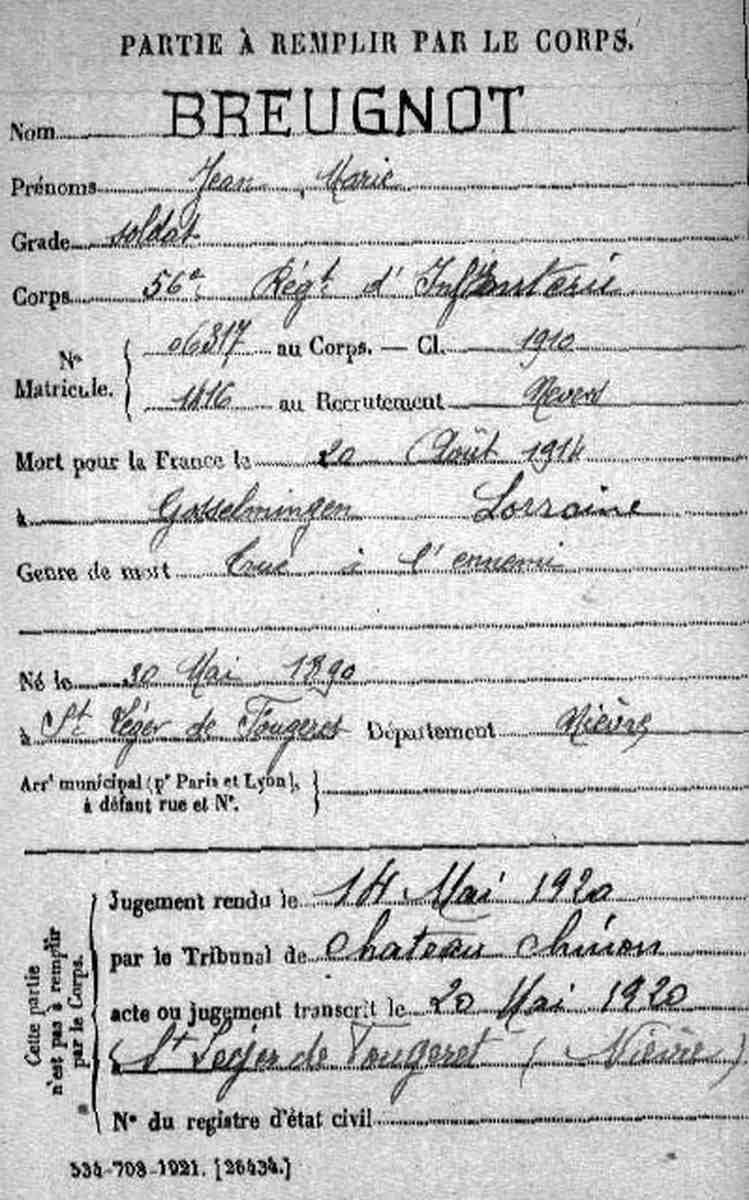 PARTIE À REMPLIR PAR LE CORPS.
Nom BREUGNOT
Prénoms Jean Marie
Grade soldat
Corps 56e Régt d'Infanterie
N° Matricule. 06317 au Corps. — Cl. 1910
1416 au Recrutement Nevers
Mort pour la France le 20 Août 1914
à Gosselmingen Lorraine
Genre de mort tué à l'ennemi
Né le 30 Mai 1890
à St Léger de Fougeret Département Nièvre
Arrt municipal (pr Paris et Lyon),
à défaut rue et N°.
Cette partie
n'est pas à remplir
par le Corps.
Jugement rendu le 14 Mai 1920
par le Tribunal de Chateau Chinon
acte ou jugement transcrit le 20 Mai 1920
à St Leger de Fougeret (Nièvre)
N° du registre d'état civil
534-708-1921. [26434.]